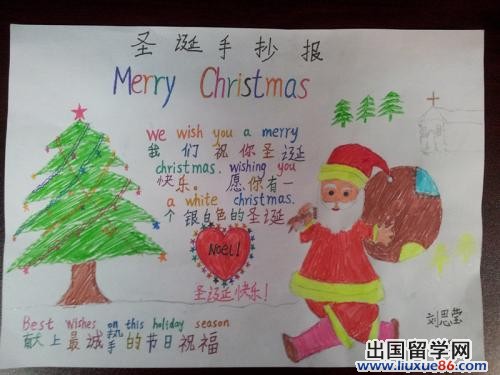 圣诞手抄报
Merry Christmas
we wish you a merry
我们祝你圣诞
christmas. wishing you
快乐。愿你有一
a white christmas.
个银白色的圣诞
Noel!
圣诞快乐!
Best wishes on this holiday season
献上最诚挚的节日祝福
刘思莹
出国留学网
www.liuxue86.com